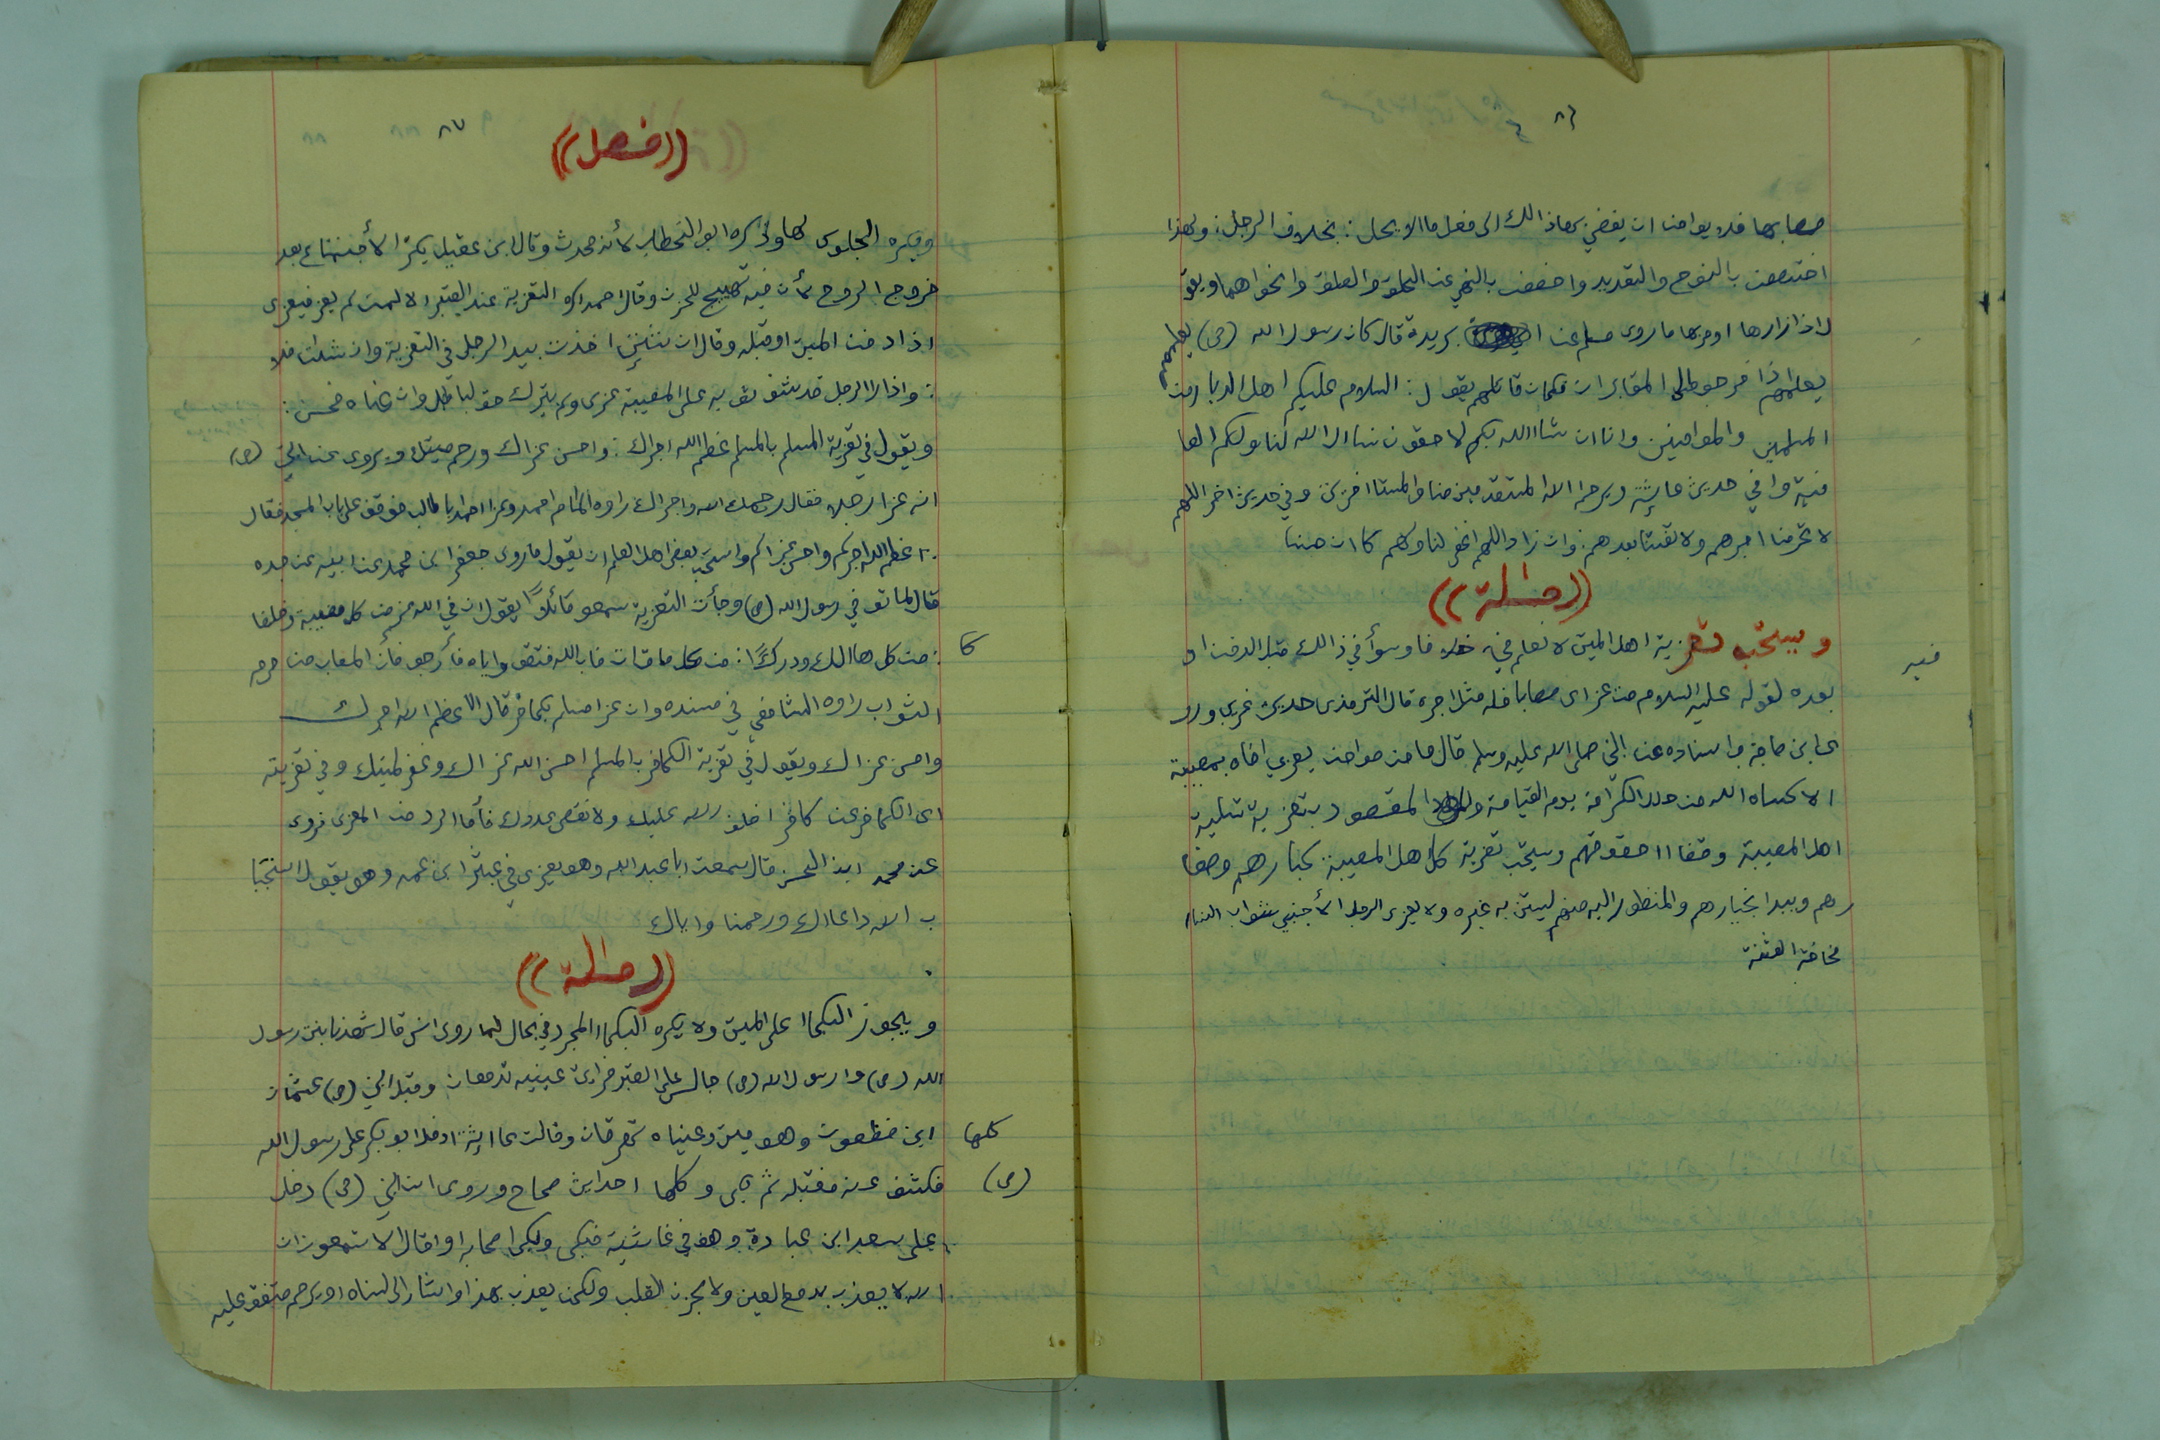 ٨٦
مصابها فلا يوامنا ان يفضي بها ذالك الى فعل ما الا يحل : بخلاف الرجل : ولهذا
اختصصن بالنوح والتعديد واخصصن بالنهي عن الحلق والصلق وانحواهما ويقو
ل اذا زارها اومر بها ما روى مسلم عن بريدة قال كان رسول الله (ص) يعلمهم
يعلمهم اذا خرجو الى المقابر ان فكان قائلهم يقول : السلام عليكم اهل الديار من
المسلمين والموامنين وانا ان شاالله بكم لاحقون نساال الله لنا ولكم العا
فية وا في حديث عايشة ويرحم الله المستقدمين منا والمستاخرين وفي حديث اخر اللهم
لا تحرمنا اجرهم ولا تفتنا بعدهم : وان زاد اللهم اغفر لنا ولهم كا ان حسنا
((مسالة))
ويستحب تعزية اهل الميت لا نعلم في خلا فا وسوأ في ذالك قبل الدفن او
فيه
بعده لقوله عليه السلام من عزاى مصابا فله مثل اجره قال الترمذى حديث غريب ورو
ى ابن ماجة با اسناده عن النبي صلى الله عليه وسلم قال ما من موامن يعزي اخاه بمصيبة
الا كساه الله من حلل الكرامة يوم القيامة و المقصود بتعزية تسلية
اهل المصيبة وقضاا حقوقهم ويستحب تعزية كل اهل المصيبة كبارهم وصغا
رهم ويبدا بخيارهم والمنظور اليه منهم ليستن به غيره ولا يعزى الرجل الأجنبي شواب النساء
مخافة الفتنة
٨٧
((فصل))
ويكره الجلوس لها وذكره ابو الخطاب لأنه محدث وقال ابن عقيل يكره الأجتماع بعد
خروج الروح لأن فيه تهييج للحزن وقال احمد اكره التعزية عند القبر الا لمن لم يعز فيعزى
اذا دفن الميت او قبله وقال ان شئت اخذت بيد الرجل في التعزية وان شئت فلا
: واذا راا الرجل قد شق ثوبه على المصيبة عزى ولم يترك حقو لباطل وان نهاه فحسن :
ويقول في تعزية المسلم بالمسلم عظم الله اجرك : واحسن عزاك ورحم ميتك ويروى عن النبي (ص)
انه عزا رجلا فقال رحمك الله واجرك راوه الامام احمد وعزا احمد ابا طالب فوقف على باب المسجد فقال
: اعظم الله اجركم واحسن عزاكم واستحب بعض اهل العلم ان يقول ما روى جعفر ابن محمد عن ابيه عن جده
قال لما توفي رسول الله (ص) وجأت التعزية سمعو قائلاً يقول ان في الله عز من كل مصيبة وخلفا
: من كل هاالك ودركاً : من كل ما فات فابالله فثقو واياه فأرجو فأن المصاب من حرم
كا
الثواب راوه الشافعي في مسنده وان عزا مسلم بكافر قال اعظم الله اجرك
واحسن عزاك ويقول في تعزية الكافر بالمسلم احسن الله عزاك وغفر لميتك وفي تعزيته
اى الكافر عن كافر اخلف الله عليك ولا نقص عددك فأما الرد من المعزى فروى
عن محمد ابن الحسن قال سمعت ابا عبدالله وهو يعزى في عبثر ابن عمه وهو يقول استجا
ب الله دعااك ورحمنا واياك
((مسالة))
ويجوز البكاا على الميت ولا يكره البكاا المجرد في بحال لما روى انس قال شهدنا بنت رسول
الله (ص) وا رسول الله (ص) جالس على القبر فرايت عينيه تدمعان وقبل النبي (ص) عثمان
ابن مظعون وهو ميت وعيناه تهرقان وقالت عاايشة ادخل ابو بكر على رسول الله
كلها
فكشف عنه فقبله ثم بكى وكلها احدايث صحاح وروى ان النبي (ص) دخل
(ص)
على سعد ابن عبادة وهو في غاشية فبكى وبكى اصحابه او قال الا تسمعون ان
الله لا يعذب بدمع العين ولا بحزن القلب ولكن يعذب بهذا واشار الى لسناه او يرحم متفق عليه